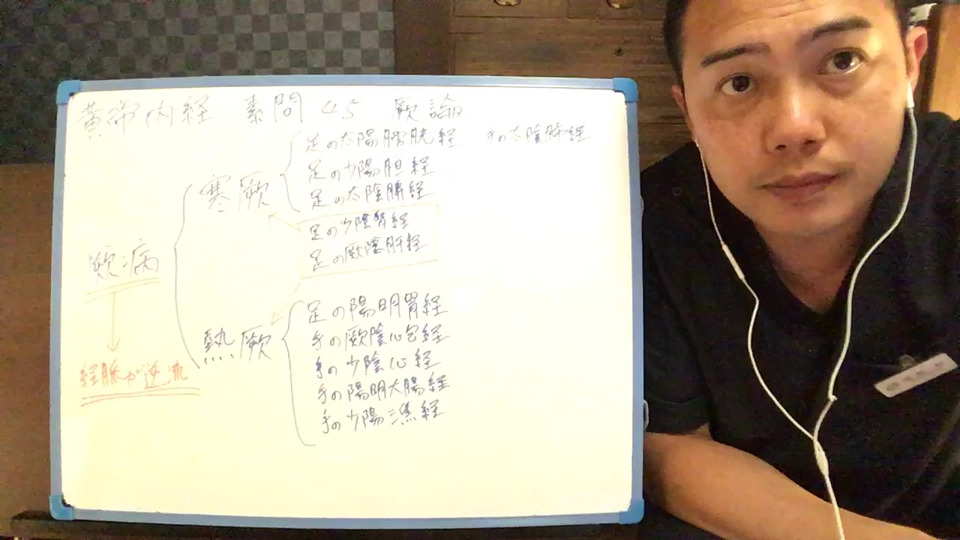 黄帝内経 素問45 厥論
足の太陽膀胱経 手の太陰肺経
足の少陽胆経
寒厥 足の太陰脾経
足の少陰腎経
足の厥陰肝経
厥病
足の陽明胃経
熱厥 手の厥陰心包経
手の少陰心経
経脈が逆流
手の陽明大腸経
手の少陽三焦経